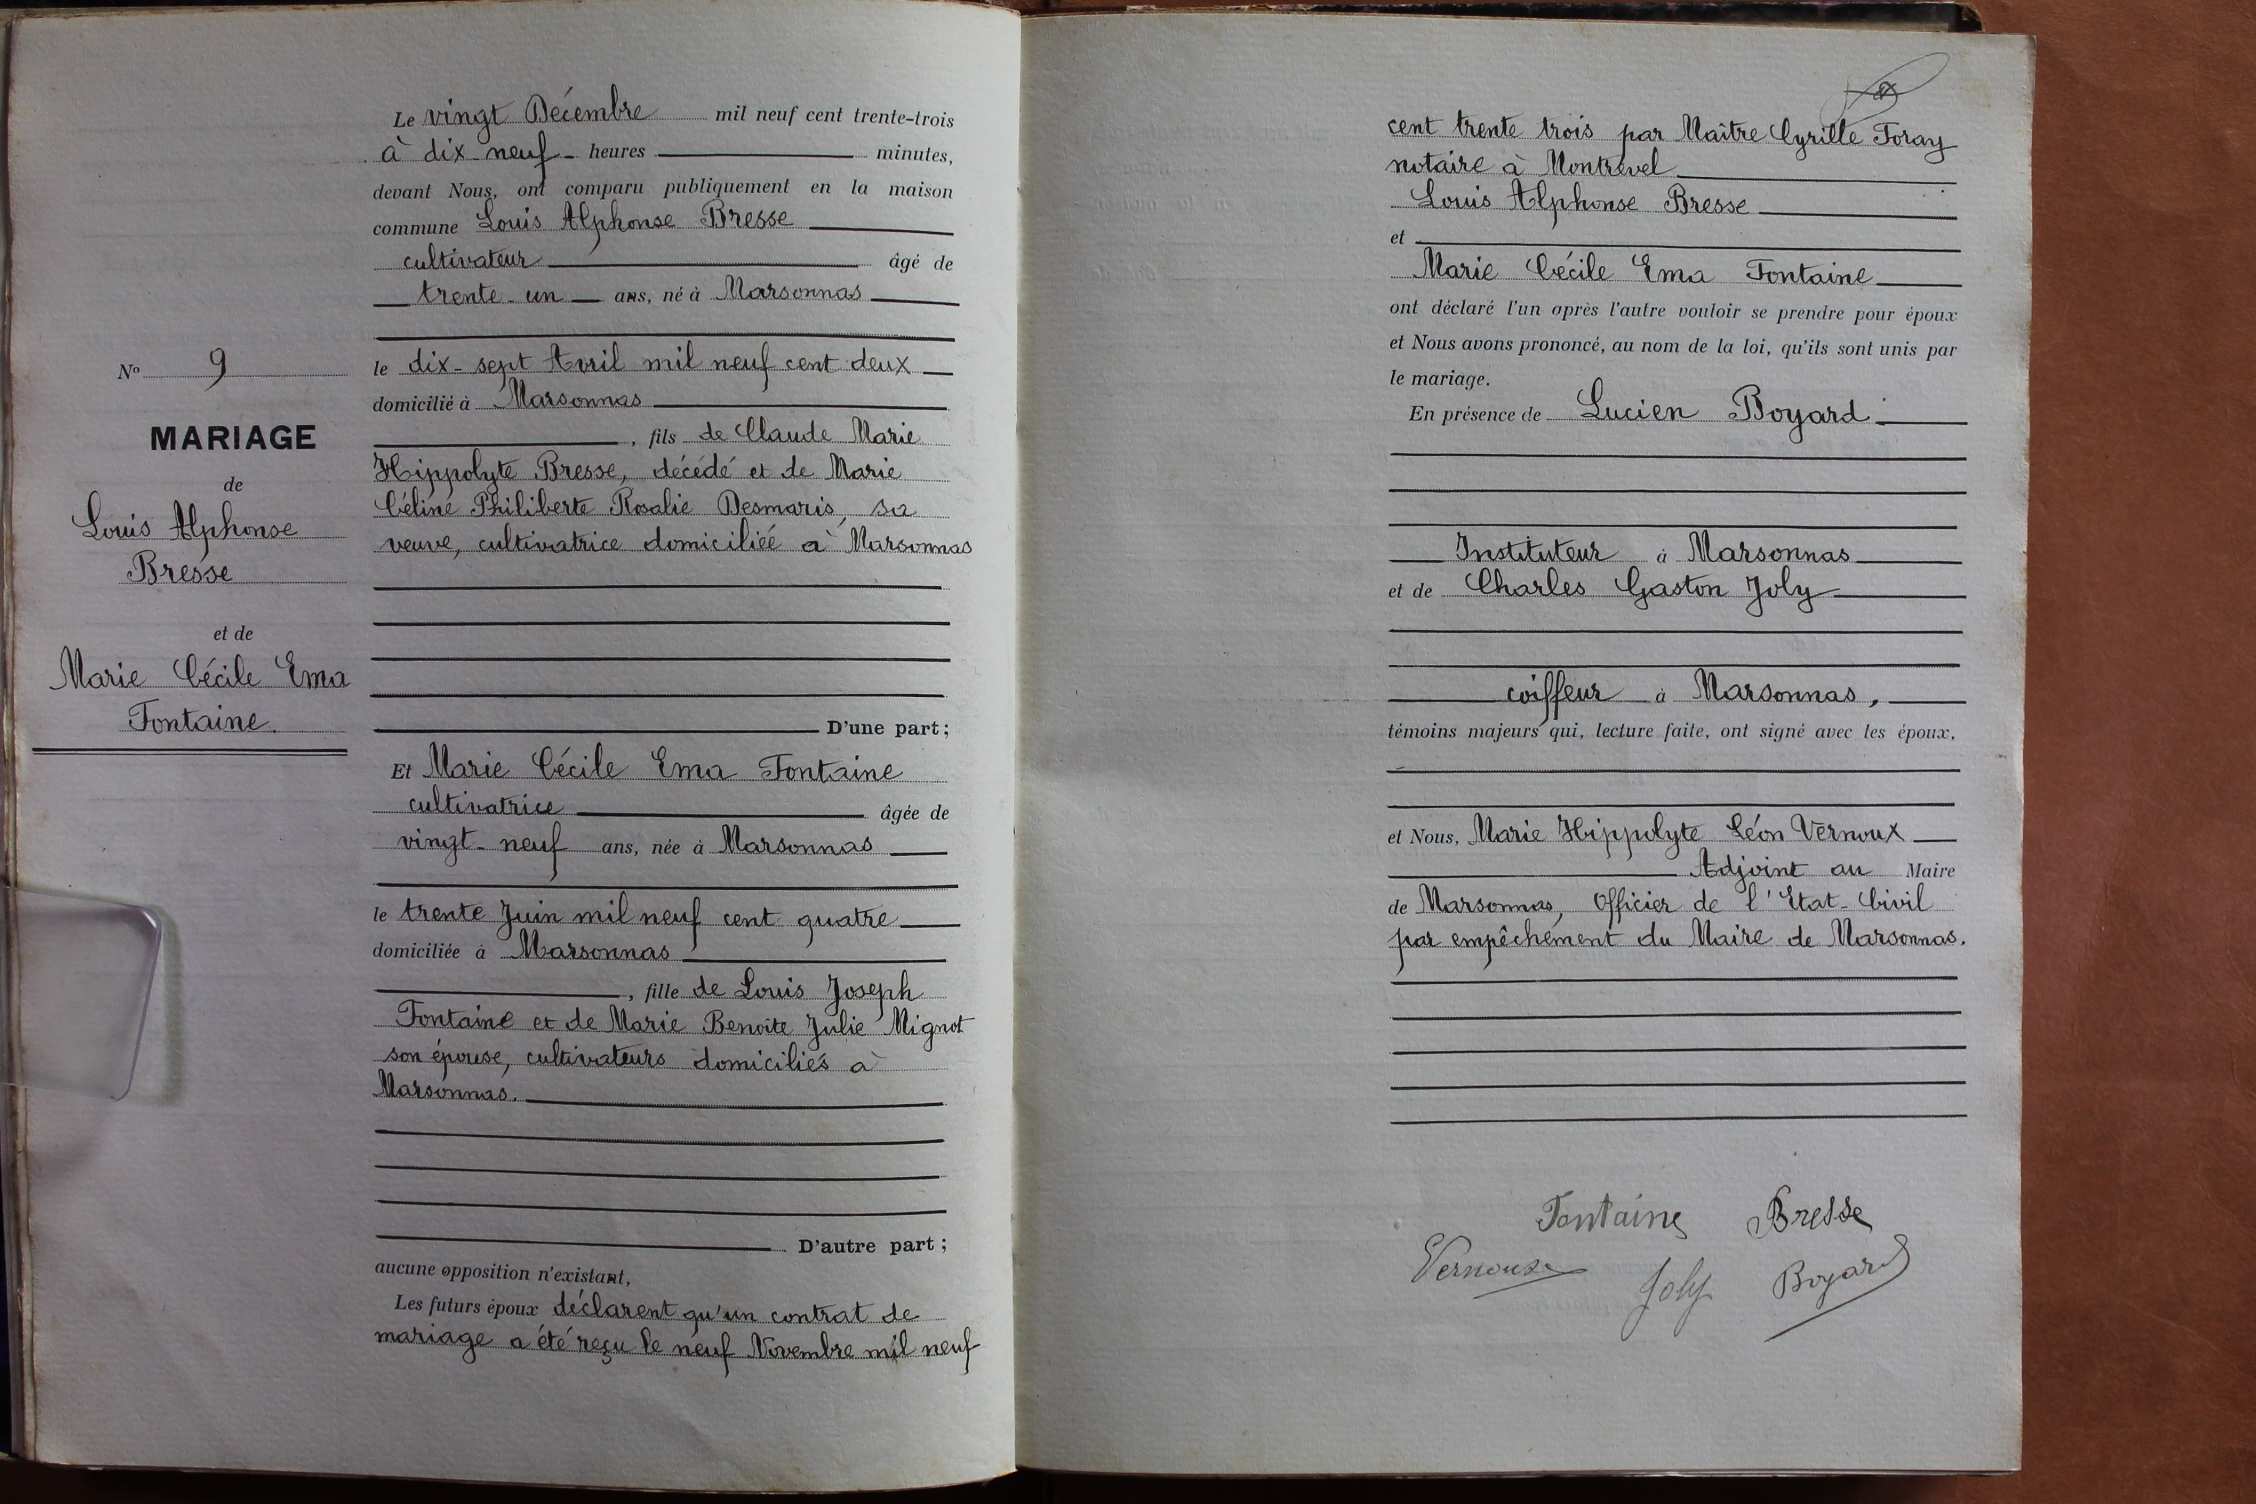 Le vingt Décembre mil neuf cent trente-trois
à dix-neuf heures minutes,
devant Nous, ont comparu publiquement en la maison
commune Louis Alphonse Bresse
cultivateur âgé de
trente-un ans, né à Marsonnas
le dix-sept Avril mil neuf cent deux
domicilié à Marsonnas
, fils de Claude Marie
Hippolyte Bresse, décédé et de Marie
Céline Philiberte Rosalie Desmaris, sa
veuve, cultivatrice domiciliée à Marsonnas
D'une part;
Et Marie Cécile Ema Fontaine
cultivatrice âgée de
vingt-neuf ans, née à Marsonnas
le trente Juin mil neuf cent quatre
domiciliée à Marsonnas
, fille de Louis Joseph
Fontaine et de Marie Benoite Julie Mignot
son épouse, cultivateurs domiciliés à
Marsonnas.
D'autre part;
aucune opposition n'existant,
Les futurs époux déclarent qu'un contrat de
mariage a été reçu le neuf Novembre mil neuf
N° 9
MARIAGE
de
Louis Alphonse
Bresse
et de
Marie Cécile Ema
Fontaine.
cent trente trois par Maître Cyrille Foray
notaire à Montrevel
Louis Alphonse Bresse
et
Marie Cécile Ema Fontaine
ont déclaré l'un après l'autre vouloir se prendre pour époux
et Nous avons prononcé, au nom de la loi, qu'ils sont unis par
le mariage.
En présence de Lucien Boyard
Instituteur à Marsonnas
et de Charles Gaston Joly
coiffeur à Marsonnas,
témoins majeurs qui, lecture faite, ont signé avec les époux,
et Nous, Marie Hippolyte Léon Vernoux
Adjoint au Maire
de Marsonnas, Officier de l'Etat-Civil
par empêchement du Maire de Marsonnas.
Fontaine Bresse
Vernoux Joly Boyard